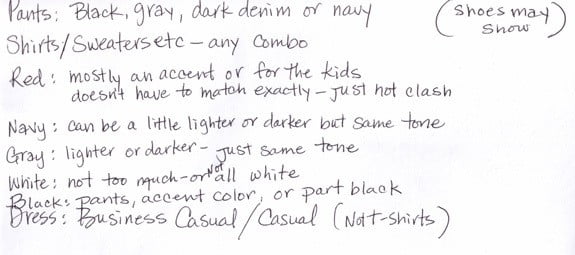 Pants: Black, gray, dark denim or navy (Shoes may show)
Shirts/Sweaters etc – any combo
Red: mostly an accent or for the kids
doesn't have to match exactly – just not clash
Navy: can be a little lighter or darker but same tone
Gray: lighter or darker – just same tone
White: not too much – or not all white
Black: pants, accent color, or part black
Dress: Business Casual/Casual (Not t-shirts)